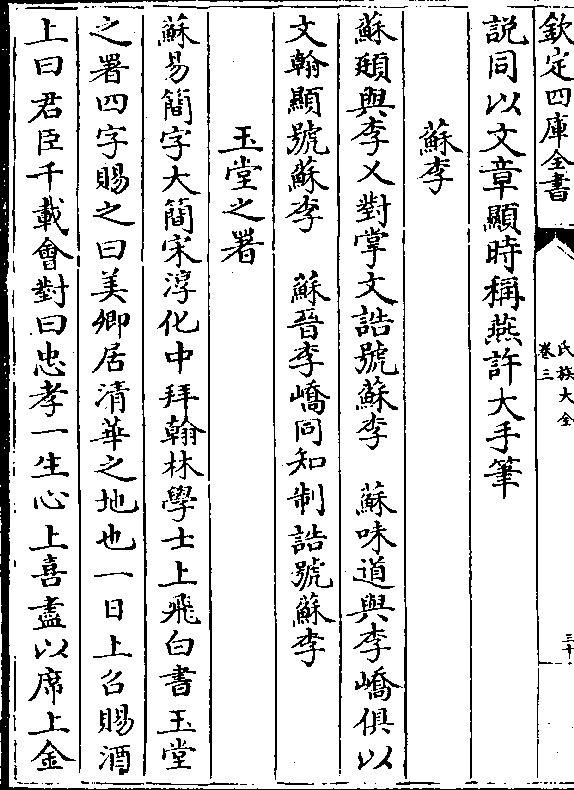 欽定四庫全書
氏族大全
卷三
三十
説同以文章顯時稱燕許大手筆
蘇李
蘇頲與李乂對掌文誥號蘇李　蘇味道與李嶠俱以
文翰顯號蘇李　蘇晉李嶠同知制誥號蘇李
玉堂之署
蘇易簡字大簡宋淳化中拜翰林學士上飛白書玉堂
之署四字賜之曰美卿居清華之地也一日上召賜酒
上曰君臣千載會對曰忠孝一生心上喜盡以席上金